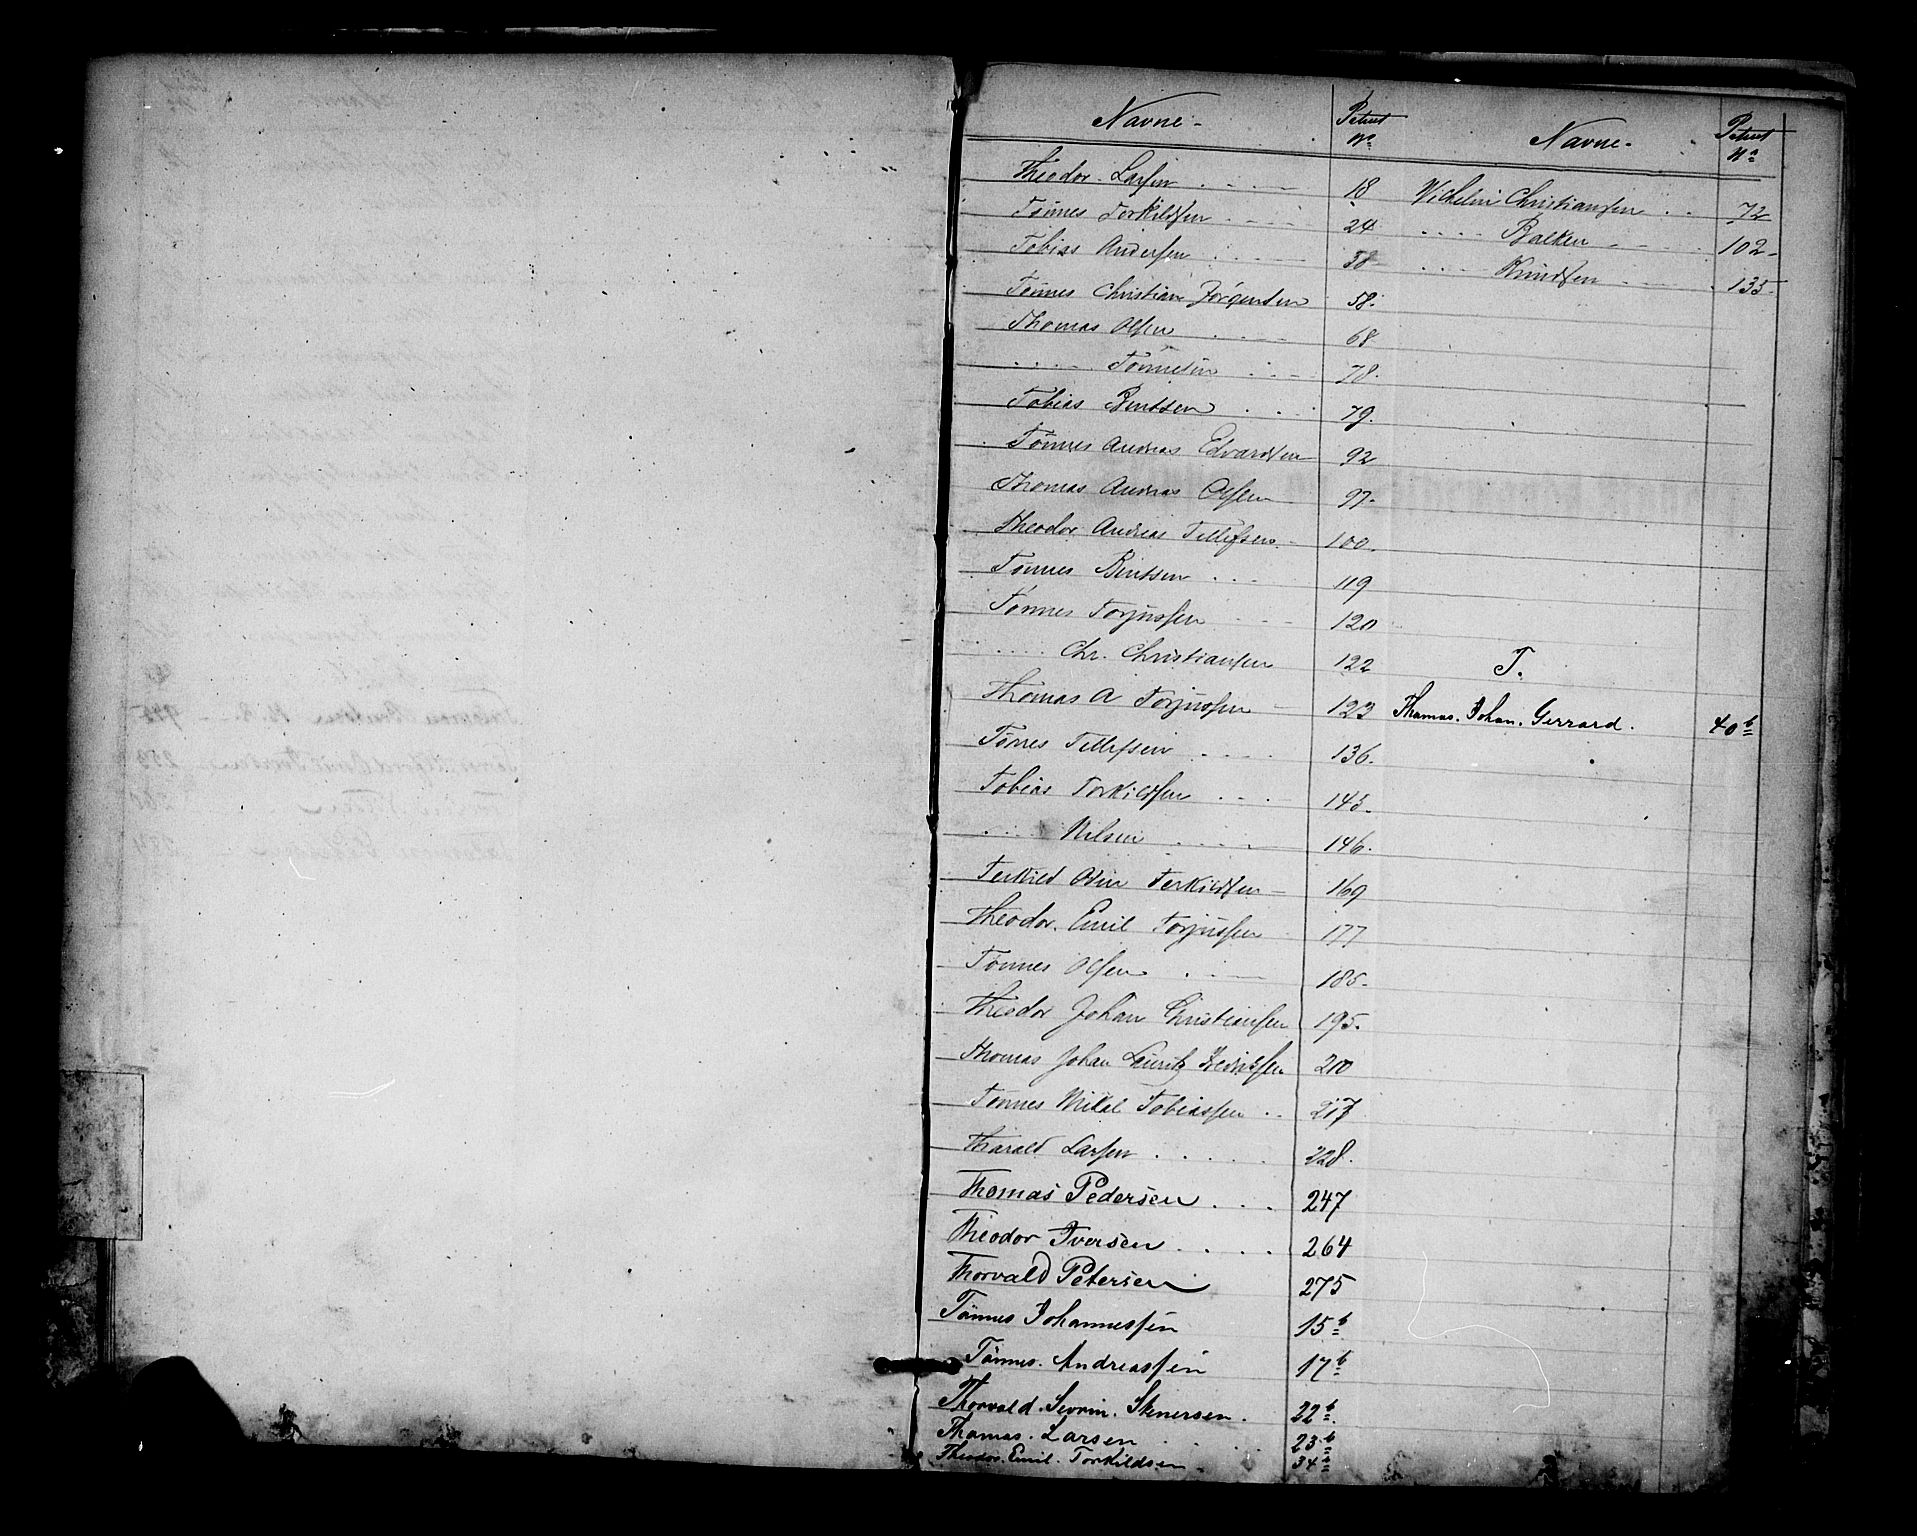 Navne - Patent No
Theodor Larsen . . . . 18
Tønnes Torkildsen . . . . 24
Tobias Andersen . . . . 38
Tønnes Christian Jørgensen 58.
Thomas Olsen . . . . 68
. . . . Tønnesen . . . . 78.
Tobias Berntsen . . . 79.
Tønnes Andreas Edvardsen 92
Thomas Andreas Olsen 97.
Theodor Andreas Tellefsen 100.
Tønnes Berntsen . . . 119
Tønnes Torjussen . . . 120
. . . . Chr. Christiansen 122
Thomas A Torjussen 123
Tønes Tellefsen . . . . 136.
Tobias Torkildsen . . . . 145.
. . . . Nilsen . . . . 146.
Terkild Odin Terkildsen 169
Theodor. Emil Torjussen 177
Tønnes Olsen . . . 185.
Theodor Johan Christiansen 195.
Thomas Johan Lauritz Fredriksen 210
Tønnes Mikal Tobiassen . . 217
Tharald Larsen . . . . . 228.
Thomas Pedersen . . . 247
Theodor Iversen . . . . 264
Thorvald Petersen 275
Tönnes Johannessen 15 b
Tönnes. Andreassen 17 b
Thorvald. Sevrin. Stenersen. 22 b.
Thomas. Larsen 23 b
Theodor. Emil. Torkildsen 34 b
Navne - Patent No
Vilhelm Christiansen . . 72
. . . . Balken . . . . 102
. . . Knudsen . . . . 135.
T.
Thomas. Johan. Gerrard. 40 b